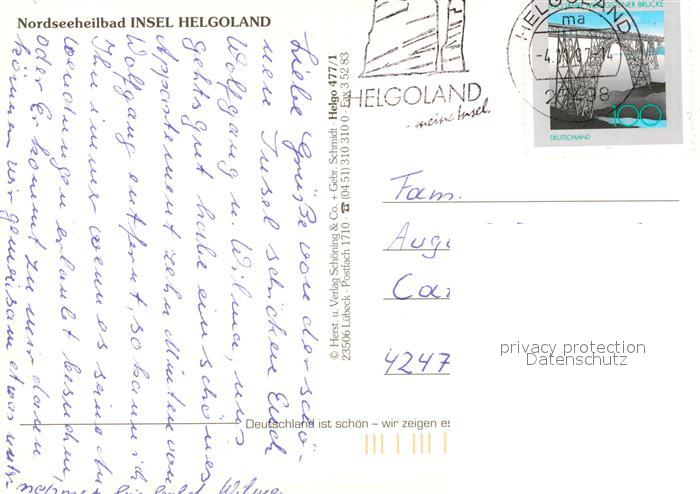 Nordseeheilbad INSEL HELGOLAND
Liebe Grüße von der schö-
nen Insel schicken Euch
Wolfgang u. Wilma, uns
gehts gut habe ein schönes
Appartement zehn Minuten von
Wolfgang entfernt, so kann ich
Ihn immer wenn es seine An
wendungen erlaubt besuchen,
oder Er kommt zu mir dann
können wir gemeinsam etwas unter-
Wilma
© Herst. u. Verlag Schöning & Co. + Gebr. Schmidt · Helgo 477/1
23506 Lübeck · Postfach 1710 · ☎ (04 51) 310 310 0 · Fax 3 52 83
HELGOLAND
- meine Insel
HELGOLAND
ma
27498
BRÜCKE
100
DEUTSCHLAND
Fam.
Aug
Ca
4247
privacy protection
Datenschutz
Deutschland ist schön – wir zeigen es